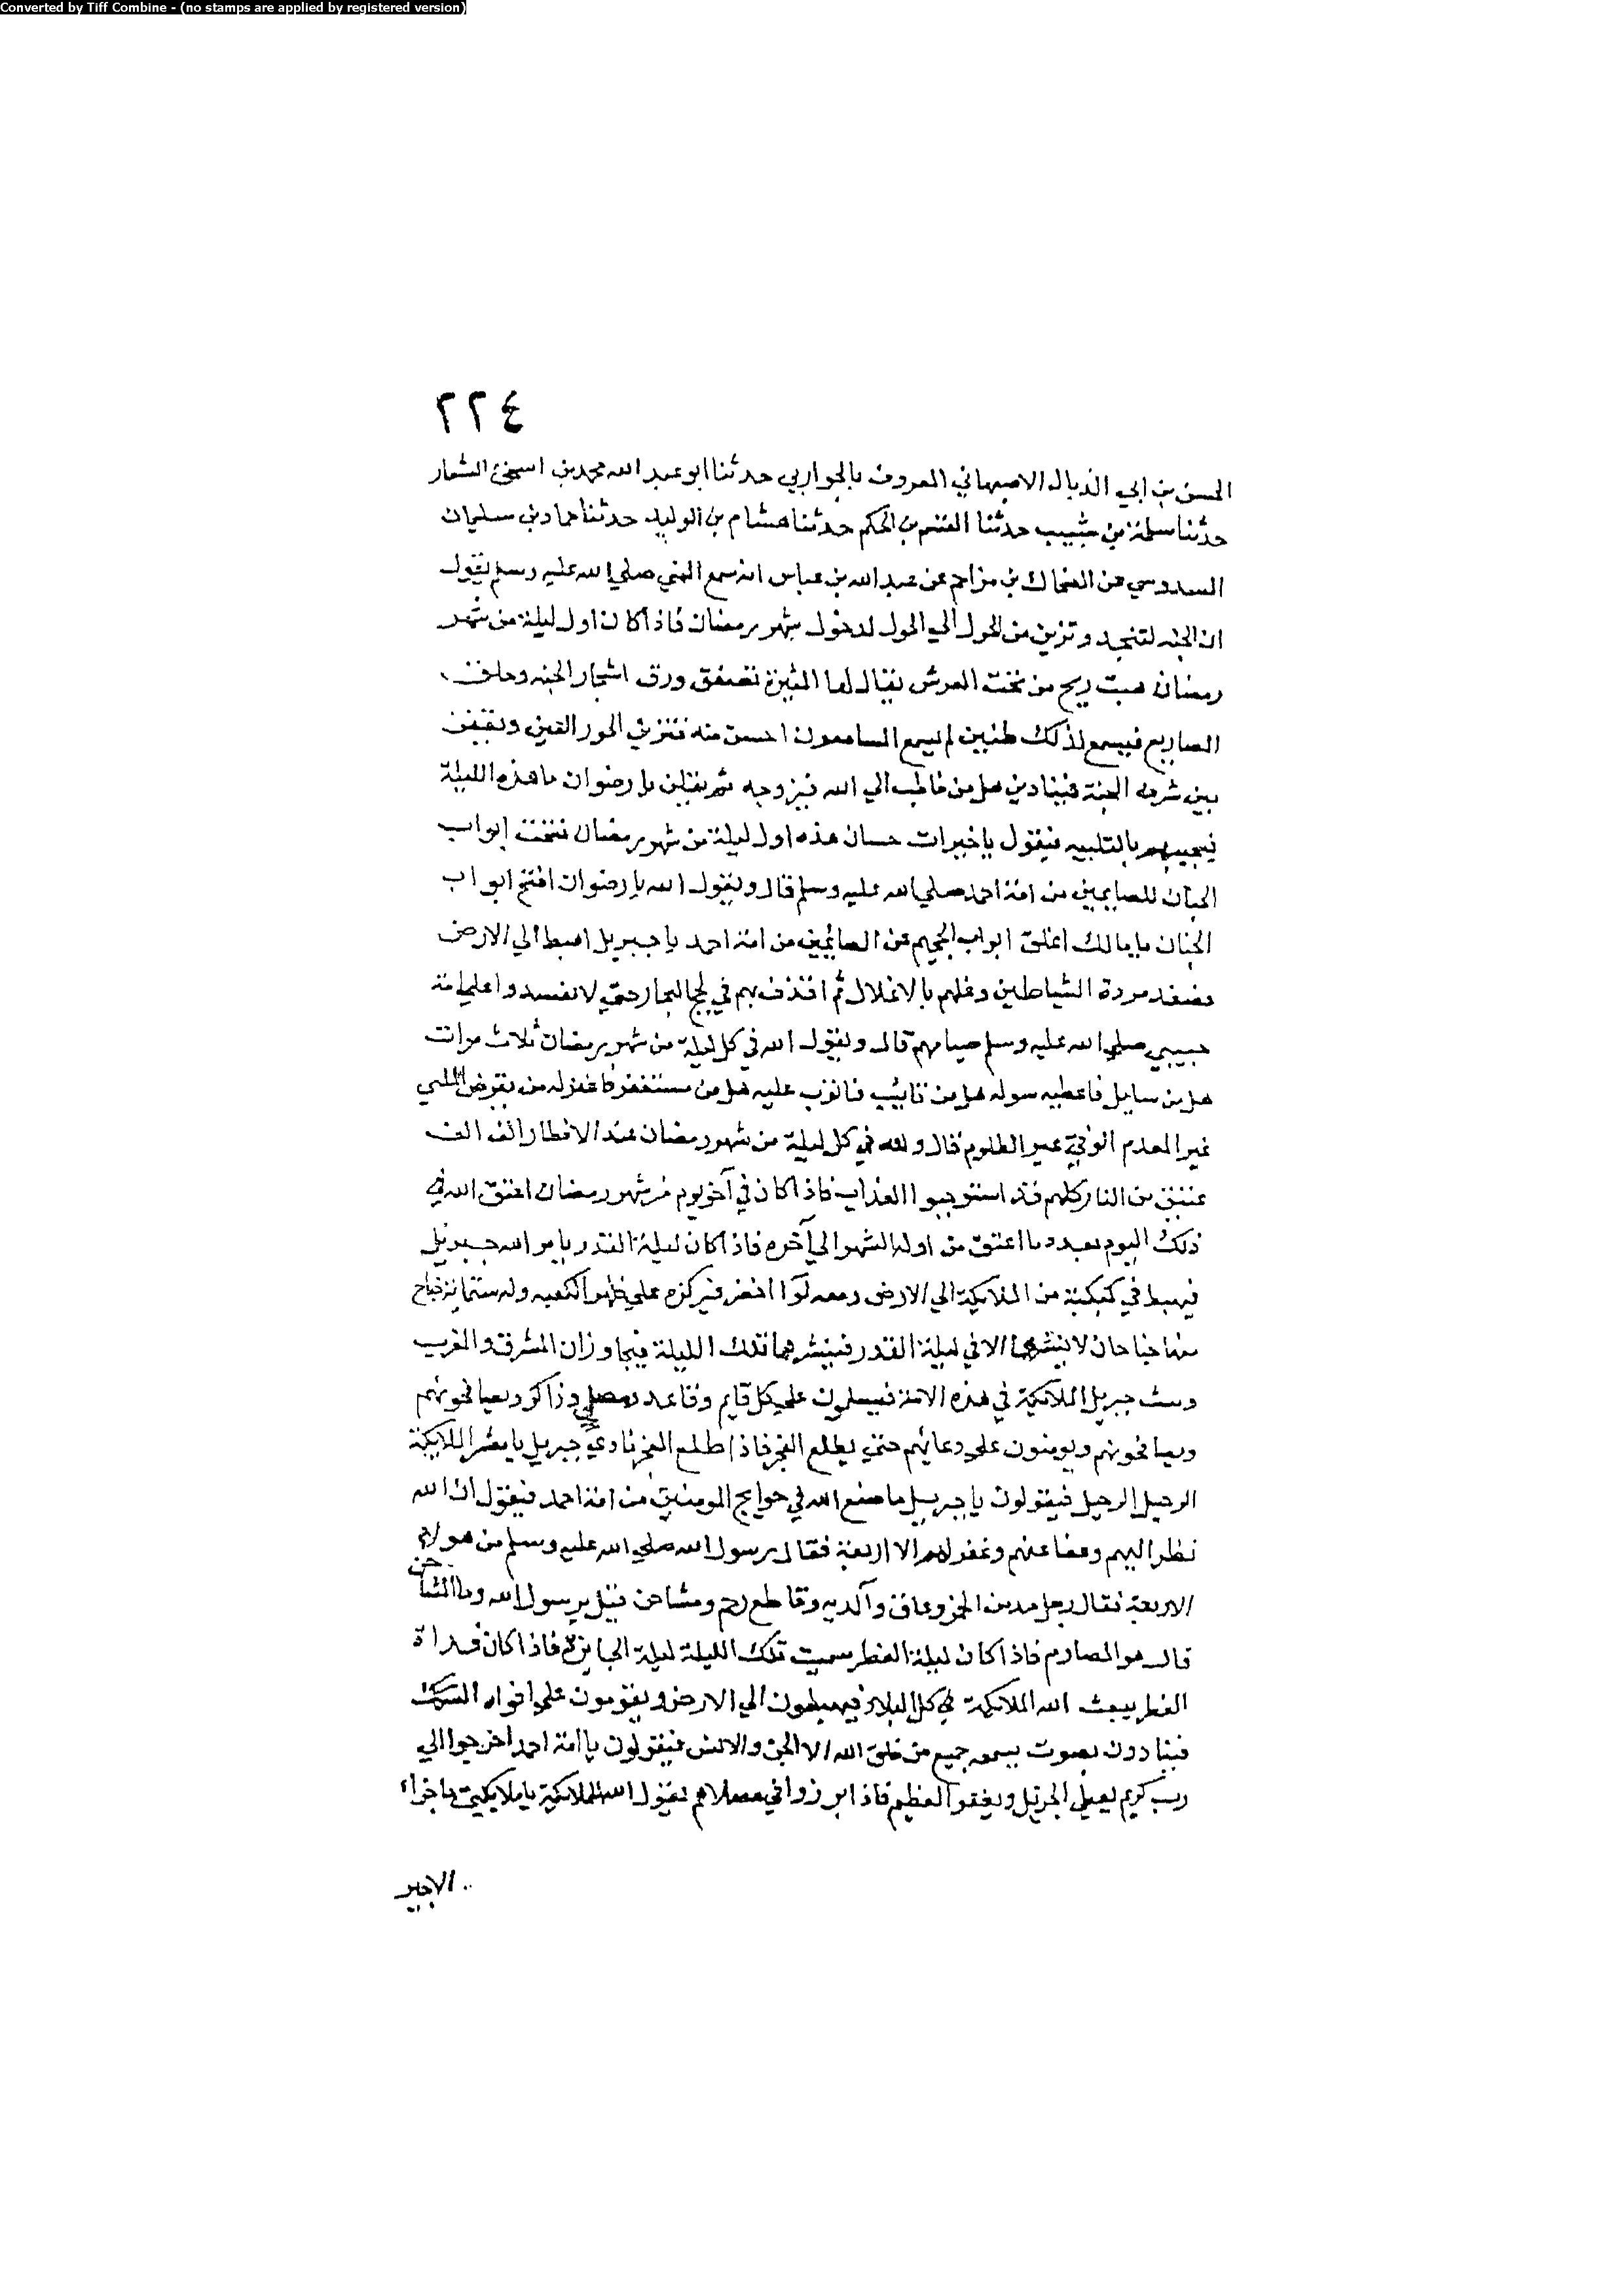 Converted by Tiff Combine - (no stamps are applied by registered version)
٢٢٤
الحسن بن ابي الذيال الاصبهاني المعروف بالجواربي حدثنا ابو عبد الله محمد بن اسحق الشعار
حدثنا سلمة بن شبيب حدثنا القسم بن الحكم حدثنا هشام بن الوليد حدثنا حماد بن سليمان
السدوسي عن الضحاك بن مزاحم عن عبد الله بن عباس انه سمع النبي صلي الله عليه وسلم يقول
ان الجنه لتنجد وتزين من الحول الي الحول لدخول شهر رمضان فاذا كان اول ليلة من شهر
رمضان هبت ريح من تحت العرش يقال لها المثيرة تصفق ورق اشجار الجنه وحلق
المصاريع فيسمع لذلك طنين لم يسمع السامعون احسن منه فتزين الحور العين ويقفن
بين شرف الجنة فينادين هل من خاطب الي الله فيزوجه ثم يقلن يا رضوان ما هذه الليلة
فيجيبهم بالتلبيه فيقول يا خيرات حسان هذه اول ليلة من شهر رمضان فتحت ابواب
الجنان للصايمين من امة احمد صلي الله عليه وسلم قال ويقول الله يا رضوان افتح ابواب
الجنان يا مالك اغلق ابواب الجحيم عن الصائمين من امة احمد يا جبريل اهبط الي الارض
فصفد مردة الشياطين وغلهم بالاغلال ثم اقذف بهم في لجج البحار حتي لا تفسدوا علي امة
حبيبي صلي الله عليه وسلم صيامهم قال ويقول الله في كل ليلة من شهر رمضان ثلاث مرات
هل من سايل فاعطيه سوله هل من تائب فاتوب عليه هل من مستغفر فاغفر له من يقرض الملي
غير المعدم الوفي غير الظلوم قال ولله في كل ليلة من شهر رمضان عند الافطار الف الف
عتيق من النار كلهم قد استوجبوا العذاب فاذا كان في آخر يوم من شهر رمضان اعتق الله في
ذلك اليوم بعدد ما اعتق من اول الشهر الي آخره فاذا كان ليلة القدر يامر الله جبريل
فيهبط في كبكبة من الملايكة الي الارض ومعه لوا اخضر فيركزه علي ظهر الكعبه وله ستماية جناح
منها جناحان لا ينشرهما الا في ليلة القدر فينشرهما تلك الليلة فيجاوزان المشرق والمغرب
ويبث جبريل الملائكة في هذه الامة فيسلمون علي كل قايم وقاعد ومصلي وذاكر ويصافحونهم
ويصافحونهم ويومنون علي دعائهم حتي يطلع الفجر فاذا طلع الفجر نادي جبريل يا معشر الملايكة
الرحيل الرحيل فيقولون يا جبريل ما صنع الله في حوايج المومنين من امة احمد فيقول ان الله
نظر اليهم وعفا عنهم وغفر لهم الا اربعة فقال رسول الله صلي الله عليه وسلم من هولاء
الاربعة فقال رجل مدمن الخمر وعاق والديه وقاطع رحم ومشاحن قيل يرسول الله وما المشاحن
قال هو المصارم فاذا كان ليلة الفطر سميت تلك الليلة ليلة الجايزة فاذا كان غداة
الفطر يبعث الله الملائكة في كل البلاد فيهبطون الي الارض ويقومون علي افواه السكك
فينادون بصوت يسمعه جميع من خلق الله الا الجن والانس فيقولون يا امة احمد اخرجوا الي
رب كريم يعطي الجزيل ويغفر العظيم فاذا برزوا في مصلاهم يقول الله للملائكة يا ملايكتي ما جزاء
الاجير